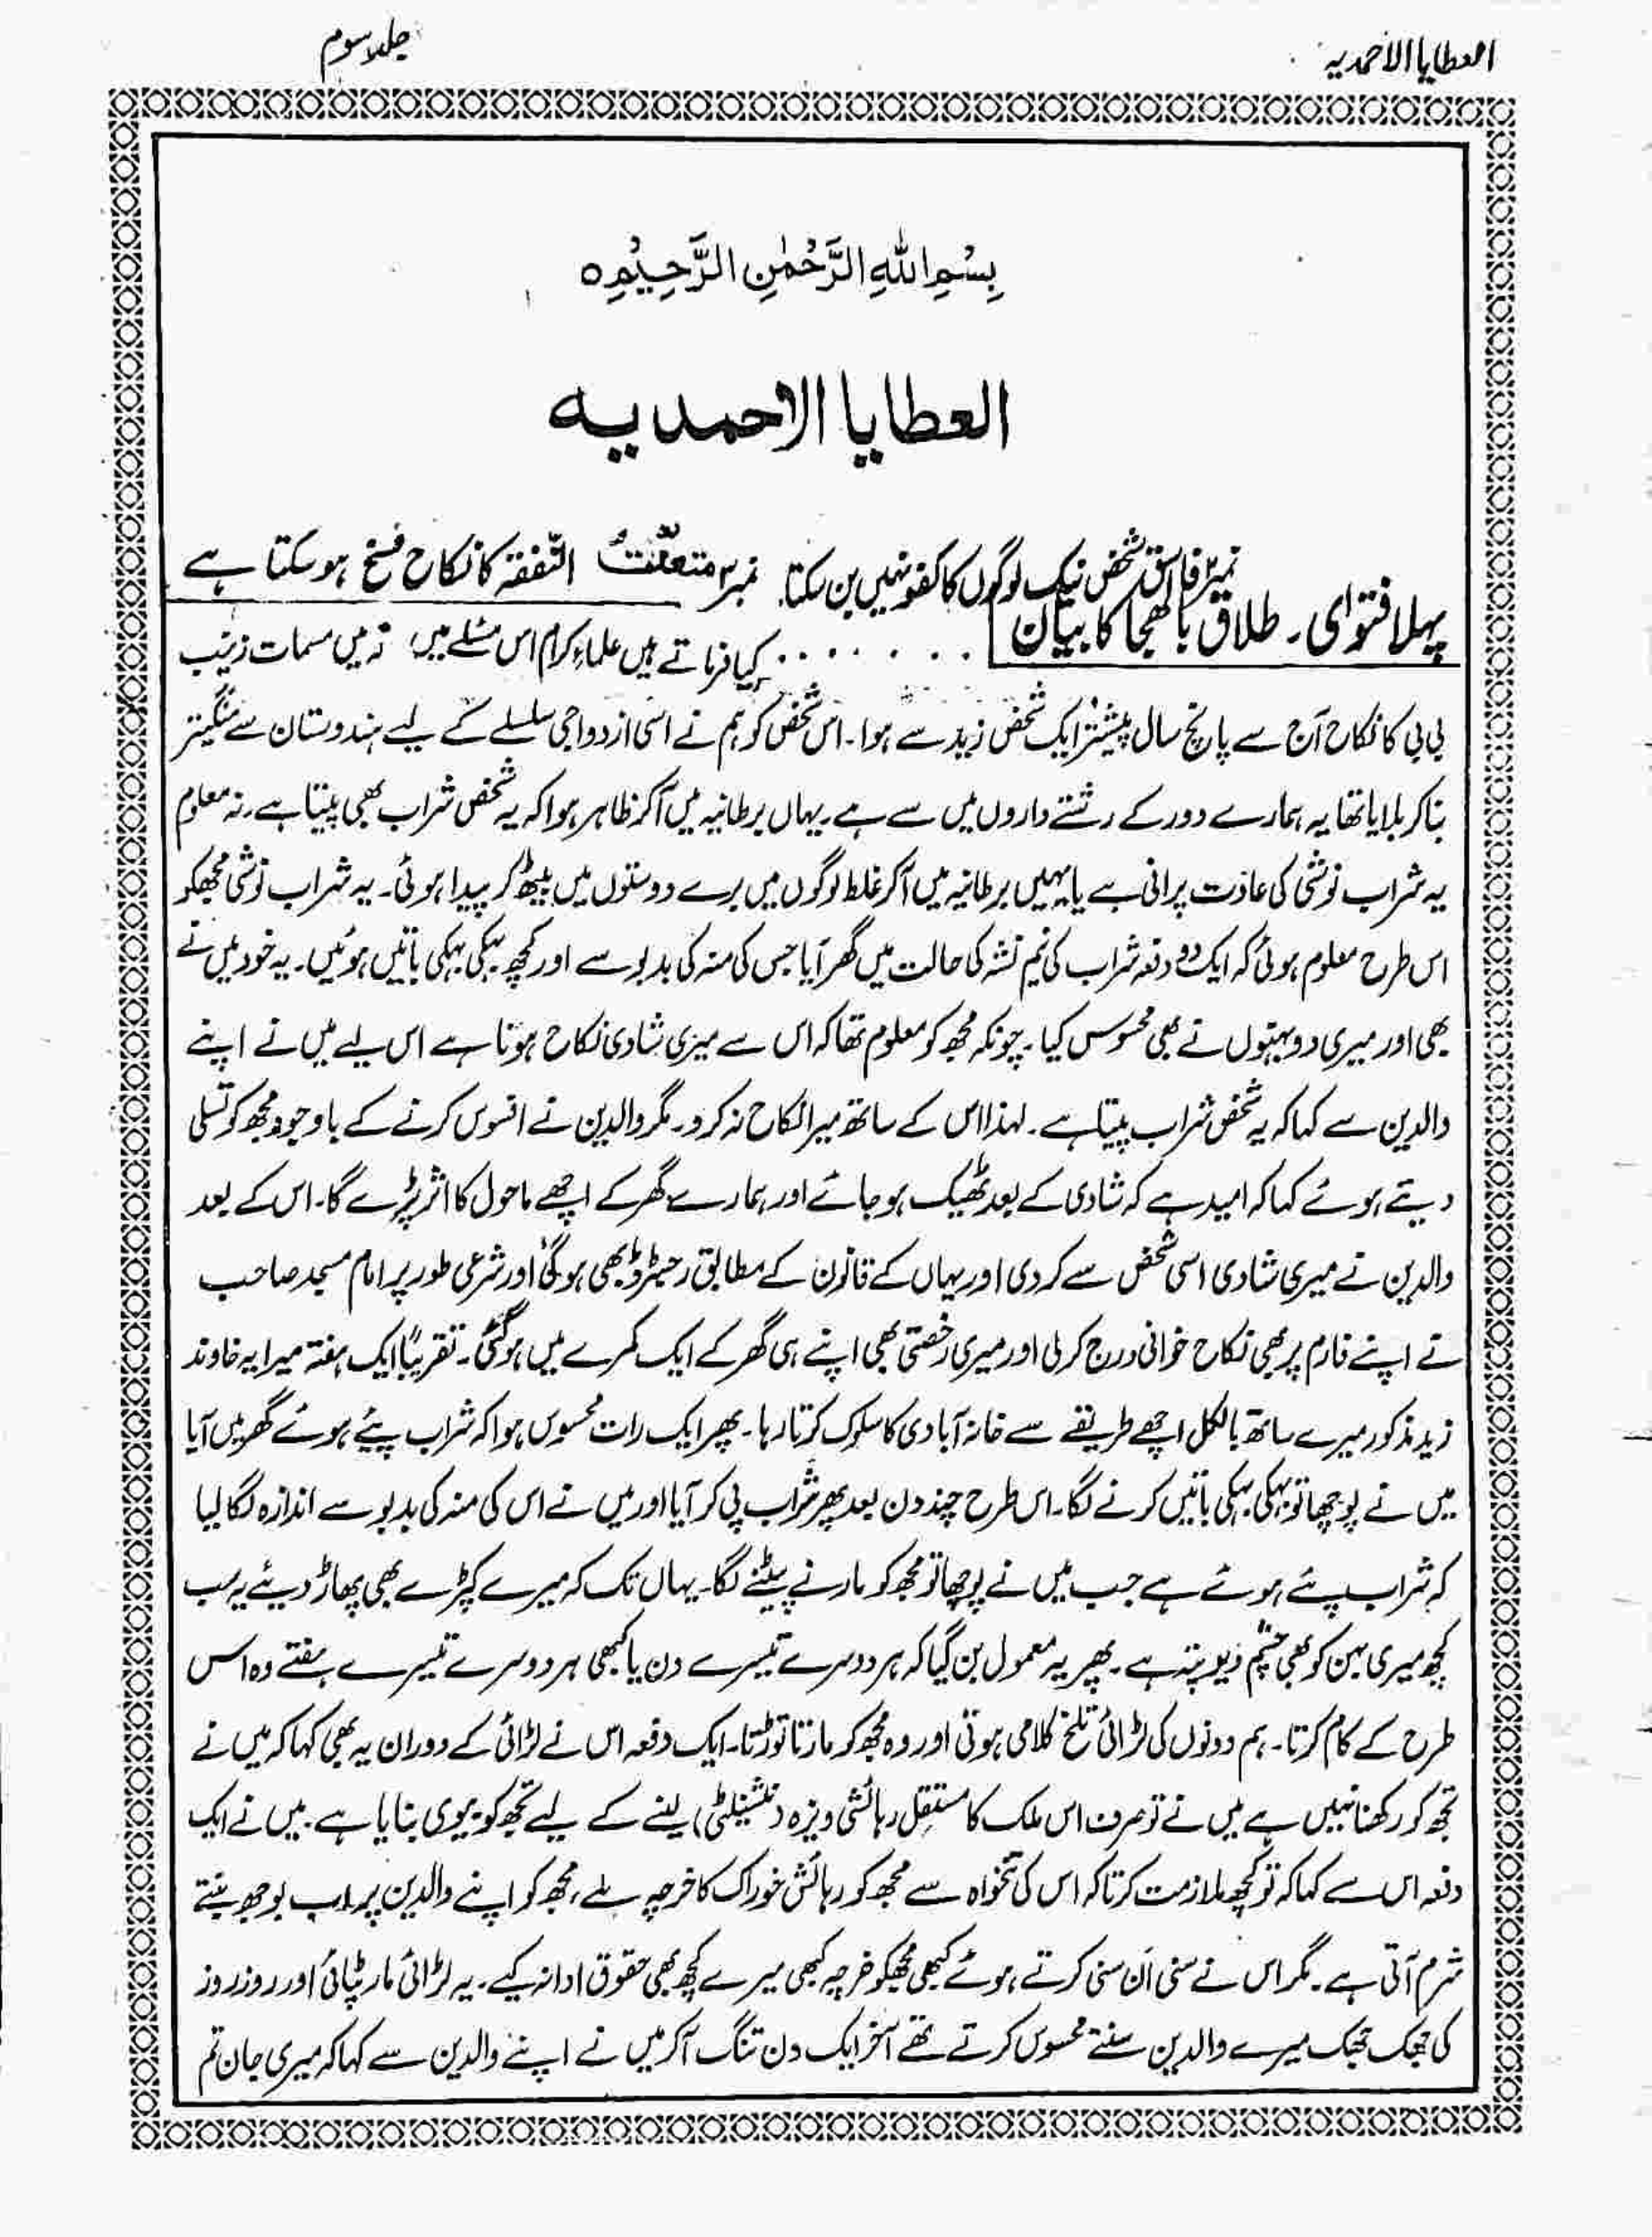 العطایا الاحمدیہ
جلد سوم
بِسْمِ اللّٰهِ الرَّحْمٰنِ الرَّحِيْمِ ہ
العطایا الاحمدیہ
نمبر۲ فاسق شخص نیک لوگوں کا کفو نہیں بن سکتا۔ نمبر۳ متعنّت النّفقہ کا نکاح فسخ ہو سکتا ہے
پہلا فتوای۔ طلاق بالھجا کا بیان
کیا فرماتے ہیں علماءِ کرام اس مسئلے میں کہ میں مسمات زینب
بی بی کا نکاح آج سے پانچ سال پیشتر ایک شخص زید سے ہوا۔ اس شخص کو ہم نے اسی ازدواجی سلسلے کے لیے ہندوستان سے منگیتر
بنا کر بلایا تھا یہ ہمارے دور کے رشتے داروں میں سے ہے۔ یہاں برطانیہ میں آکر ظاہر ہوا کہ یہ شخص شراب بھی پیتا ہے، نہ معلوم
یہ شراب نوشی کی عادت پرانی ہے یا یہیں برطانیہ میں آکر غلط لوگوں میں برے دوستوں میں بیٹھ کر پیدا ہوئی۔ یہ شراب نوشی مجھکو
اس طرح معلوم ہوئی کہ ایک دو دفعہ شراب کی نیم نشہ کی حالت میں گھر آیا جس کی منہ کی بدبو سے اور کچھ بہکی بہکی باتیں ہوئیں۔ یہ خود میں نے
بھی اور میری دو بہنوں نے بھی محسوس کیا۔ چونکہ مجھ کو معلوم تھا کہ اس سے میری شادی نکاح ہونا ہے اس لیے میں نے اپنے
والدین سے کہا کہ یہ شخص شراب پیتا ہے۔ لہذا اس کے ساتھ میرا نکاح نہ کرو۔ مگر والدین نے افسوس کرنے کے باوجود مجھ کو تسلی
دیتے ہوئے کہا کہ امید ہے کہ شادی کے بعد ٹھیک ہو جائے اور ہمارے گھر کے اچھے ماحول کا اثر پڑے گا۔ اس کے بعد
والدین نے میری شادی اسی شخص سے کردی اور یہاں کے قانون کے مطابق رجسٹرڈ بھی ہوگئی اور شرعی طور پر امام مسجد صاحب
نے اپنے فارم پر بھی نکاح خوانی درج کرلی اور میری رخصتی بھی اپنے ہی گھر کے ایک کمرے میں ہوگئی۔ تقریباً ایک ہفتہ میرا یہ خاوند
زید مذکور میرے ساتھ بالکل اچھے طریقے سے خانہ آبادی کا سلوک کرتا رہا۔ پھر ایک رات محسوس ہوا کہ شراب پئے ہوئے گھر میں آیا
میں نے پوچھا تو بہکی بہکی باتیں کرنے لگا۔ اس طرح چند دن بعد پھر شراب پی کر آیا اور میں نے اس کی منہ کی بدبو سے اندازہ لگا لیا
کہ شراب پئے ہوئے ہے جب میں نے پوچھا تو مجھ کو مارنے پیٹنے لگا۔ یہاں تک کہ میرے کپڑے بھی پھاڑ دیئے یہ سب
کچھ میری بہن کو بھی چشم دیو پتہ ہے۔ پھر یہ معمول بن گیا کہ ہر دوسرے تیسرے دن یا کبھی ہر دوسرے تیسرے ہفتے وہ اس
طرح کے کام کرتا۔ ہم دونوں کی لڑائی تلخ کلامی ہوتی اور وہ مجھ کو مارتا توڑتا۔ ایک دفعہ اس نے لڑائی کے دوران یہ بھی کہا کہ میں نے
تجھ کو رکھنا نہیں ہے میں نے تو صرف اس ملک کا مستقل رہائشی ویزہ (نشینلٹی) لینے کے لیے تجھ کو بیوی بنایا ہے۔ میں نے ایک
دفعہ اس سے کہا کہ تو کچھ ملازمت کرتا کہ اس کی تنخواہ سے مجھ کو رہائش خوراک کا خرچہ ملے، مجھ کو اپنے والدین پر اب بوجھ بنتے
شرم آتی ہے۔ مگر اس نے سنی اَن سنی کرتے ہوئے کبھی مجھکو خرچہ کبھی میرے کچھ بھی حقوق ادا نہ کیے۔ یہ لڑائی مار پٹائی اور روز روز
کی جھک جھک میرے والدین سنتے محسوس کرتے تھے آخر ایک دن تنگ آکر میں نے اپنے والدین سے کہا کہ میری جان تم